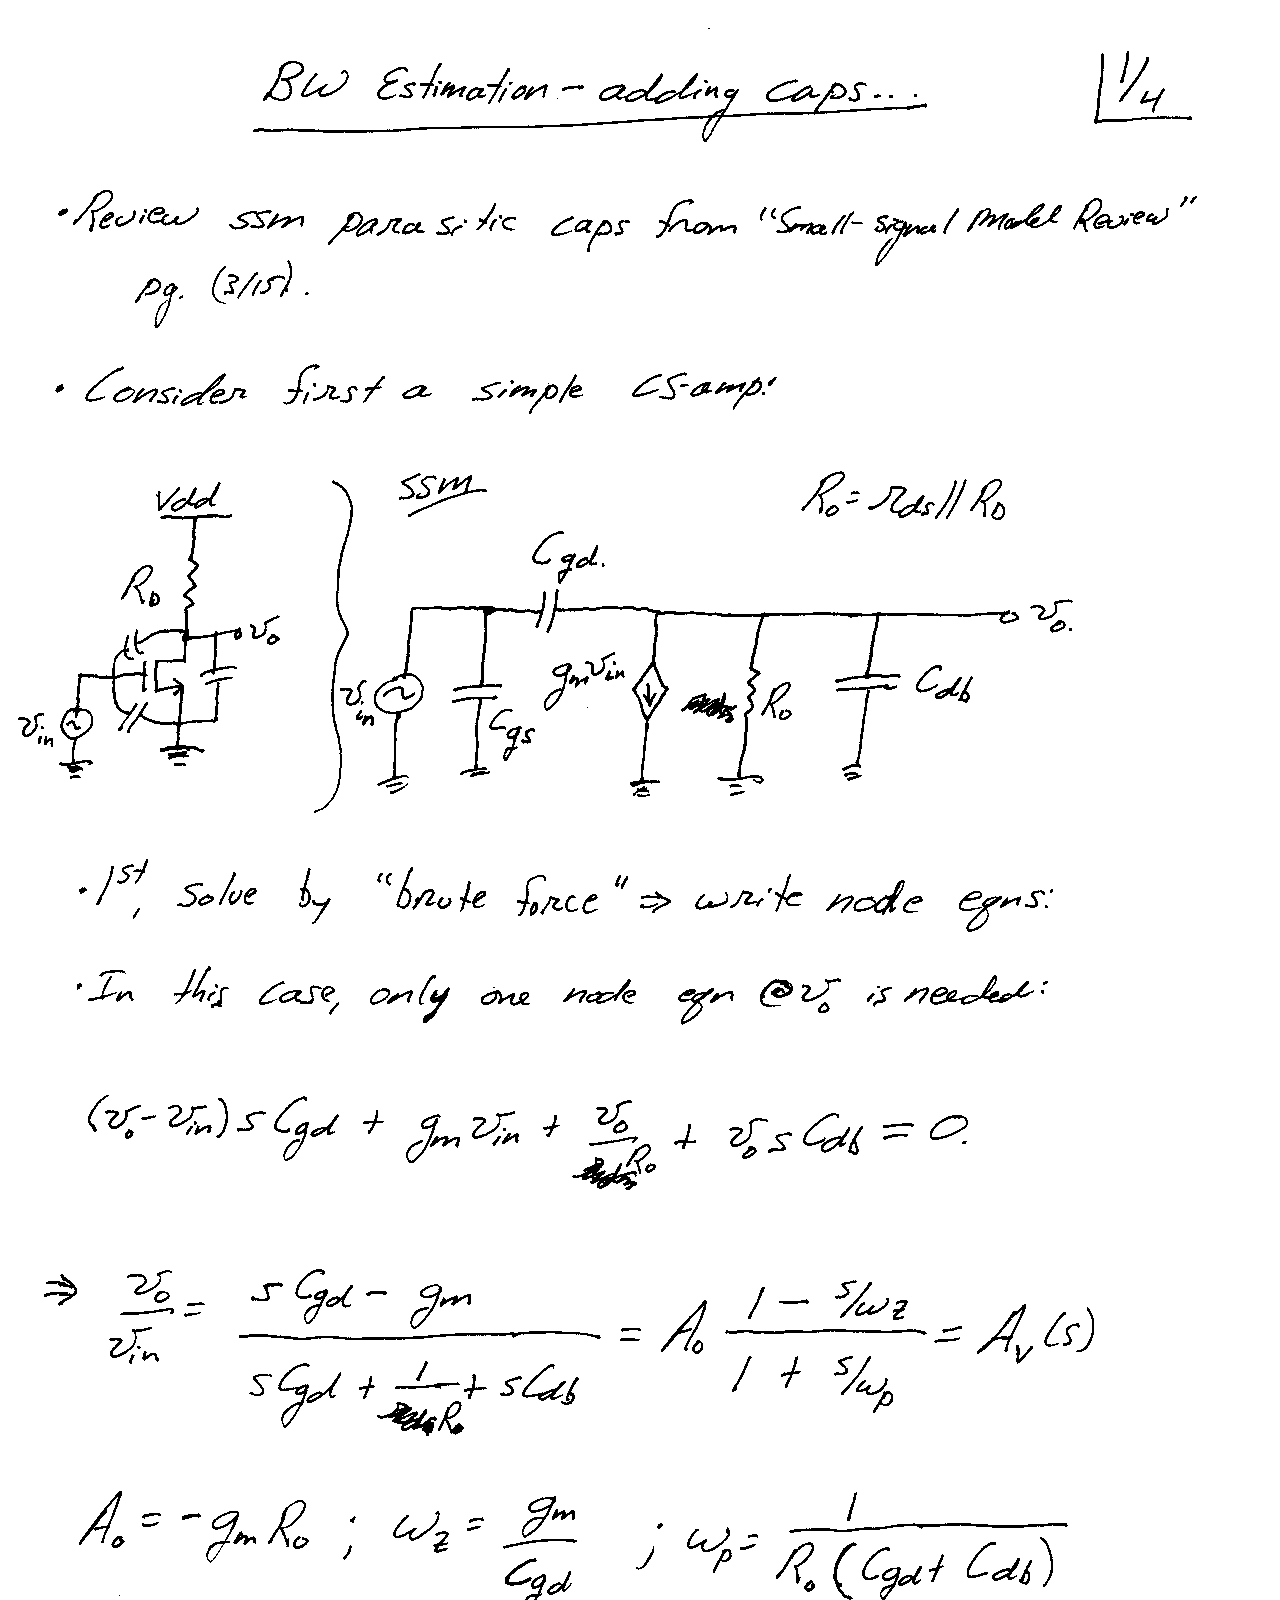 BW Estimation - adding caps...
1/4
• Review ssm parasitic caps from "Small-signal Model Review"
pg. (3/15).
• Consider first a simple CS-amp:
Vdd
ssm
R₀ = r_ds // R_D
R_D
C_gd.
v₀
v₀.
v_in
v_in
C_gs
g_m v_in
R₀
C_db
• 1st, solve by "brute force" ⇒ write node eqns:
• In this case, only one node eqn @ v₀ is needed:
(v₀ - v_in) s C_gd + g_m v_in + v₀/R₀ + v₀ s C_db = 0.
⇒ v₀/v_in = (s C_gd - g_m)/(s C_gd + 1/R₀ + s C_db) = A₀ (1 - s/ω_z)/(1 + s/ω_p) = A_v(s)
A₀ = -g_m R₀ ; ω_z = g_m/C_gd ; ω_p = 1/(R₀ (C_gd + C_db))